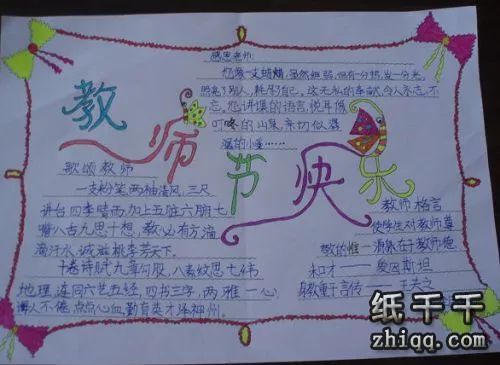 感恩老师:
您像一支蜡烛,虽然细弱,但有一分热,发一分光,
照亮了别人,耗尽了自己。这无私的奉献,令人永志不
忘。您讲课的语言,悦耳像
叮咚的山泉,亲切似潺
潺的小溪……
教师节快乐
歌颂教师
一支粉笔两袖清风,三尺
讲台四季晴雨,加上五脏六腑七
嘴八舌九思十想,教必有方滴
滴汗水,诚滋桃李芳天下。
十卷诗赋九章勾股,八索文思七纬
地理,连同六艺五经,四书三字,两雅一心
诲人不倦,点点心血,勤育英才泽神州。
教师格言
使学生对教师尊
敬的惟一源泉在于教师德
和才——爱因斯坦
身教重于言传——王夫之
纸千千
zhiqq.com